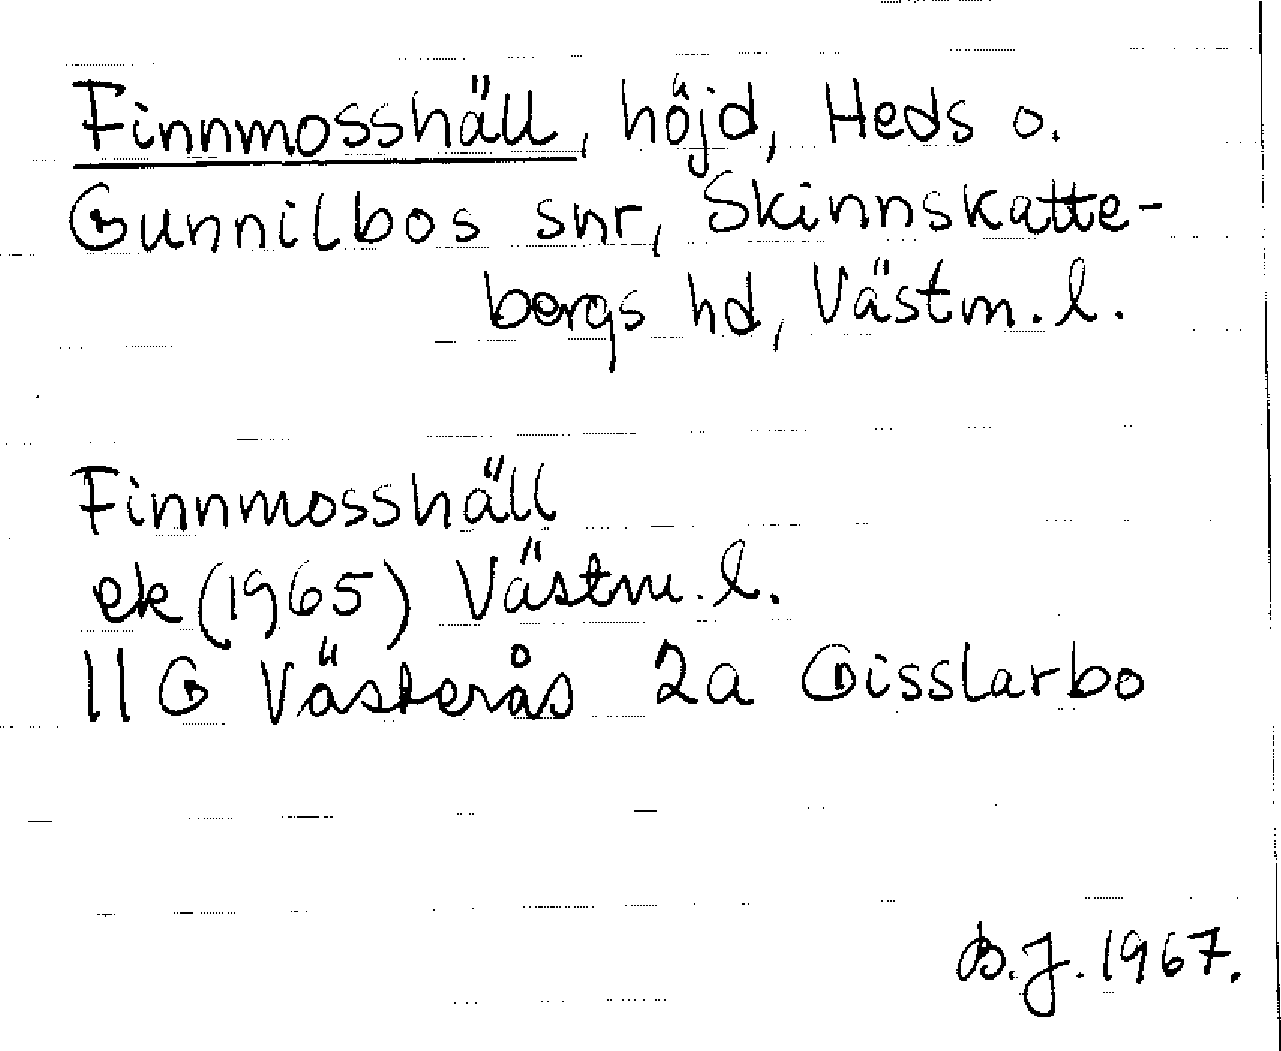 Finnmosshäll, höjd, Heds o.
Gunnilbos snr, Skinnskatte-
bergs hd, Västm. l.
Finnmosshäll
ek (1965) Västm. l.
11G Västerås 2a Gisslarbo
B.J. 1967.